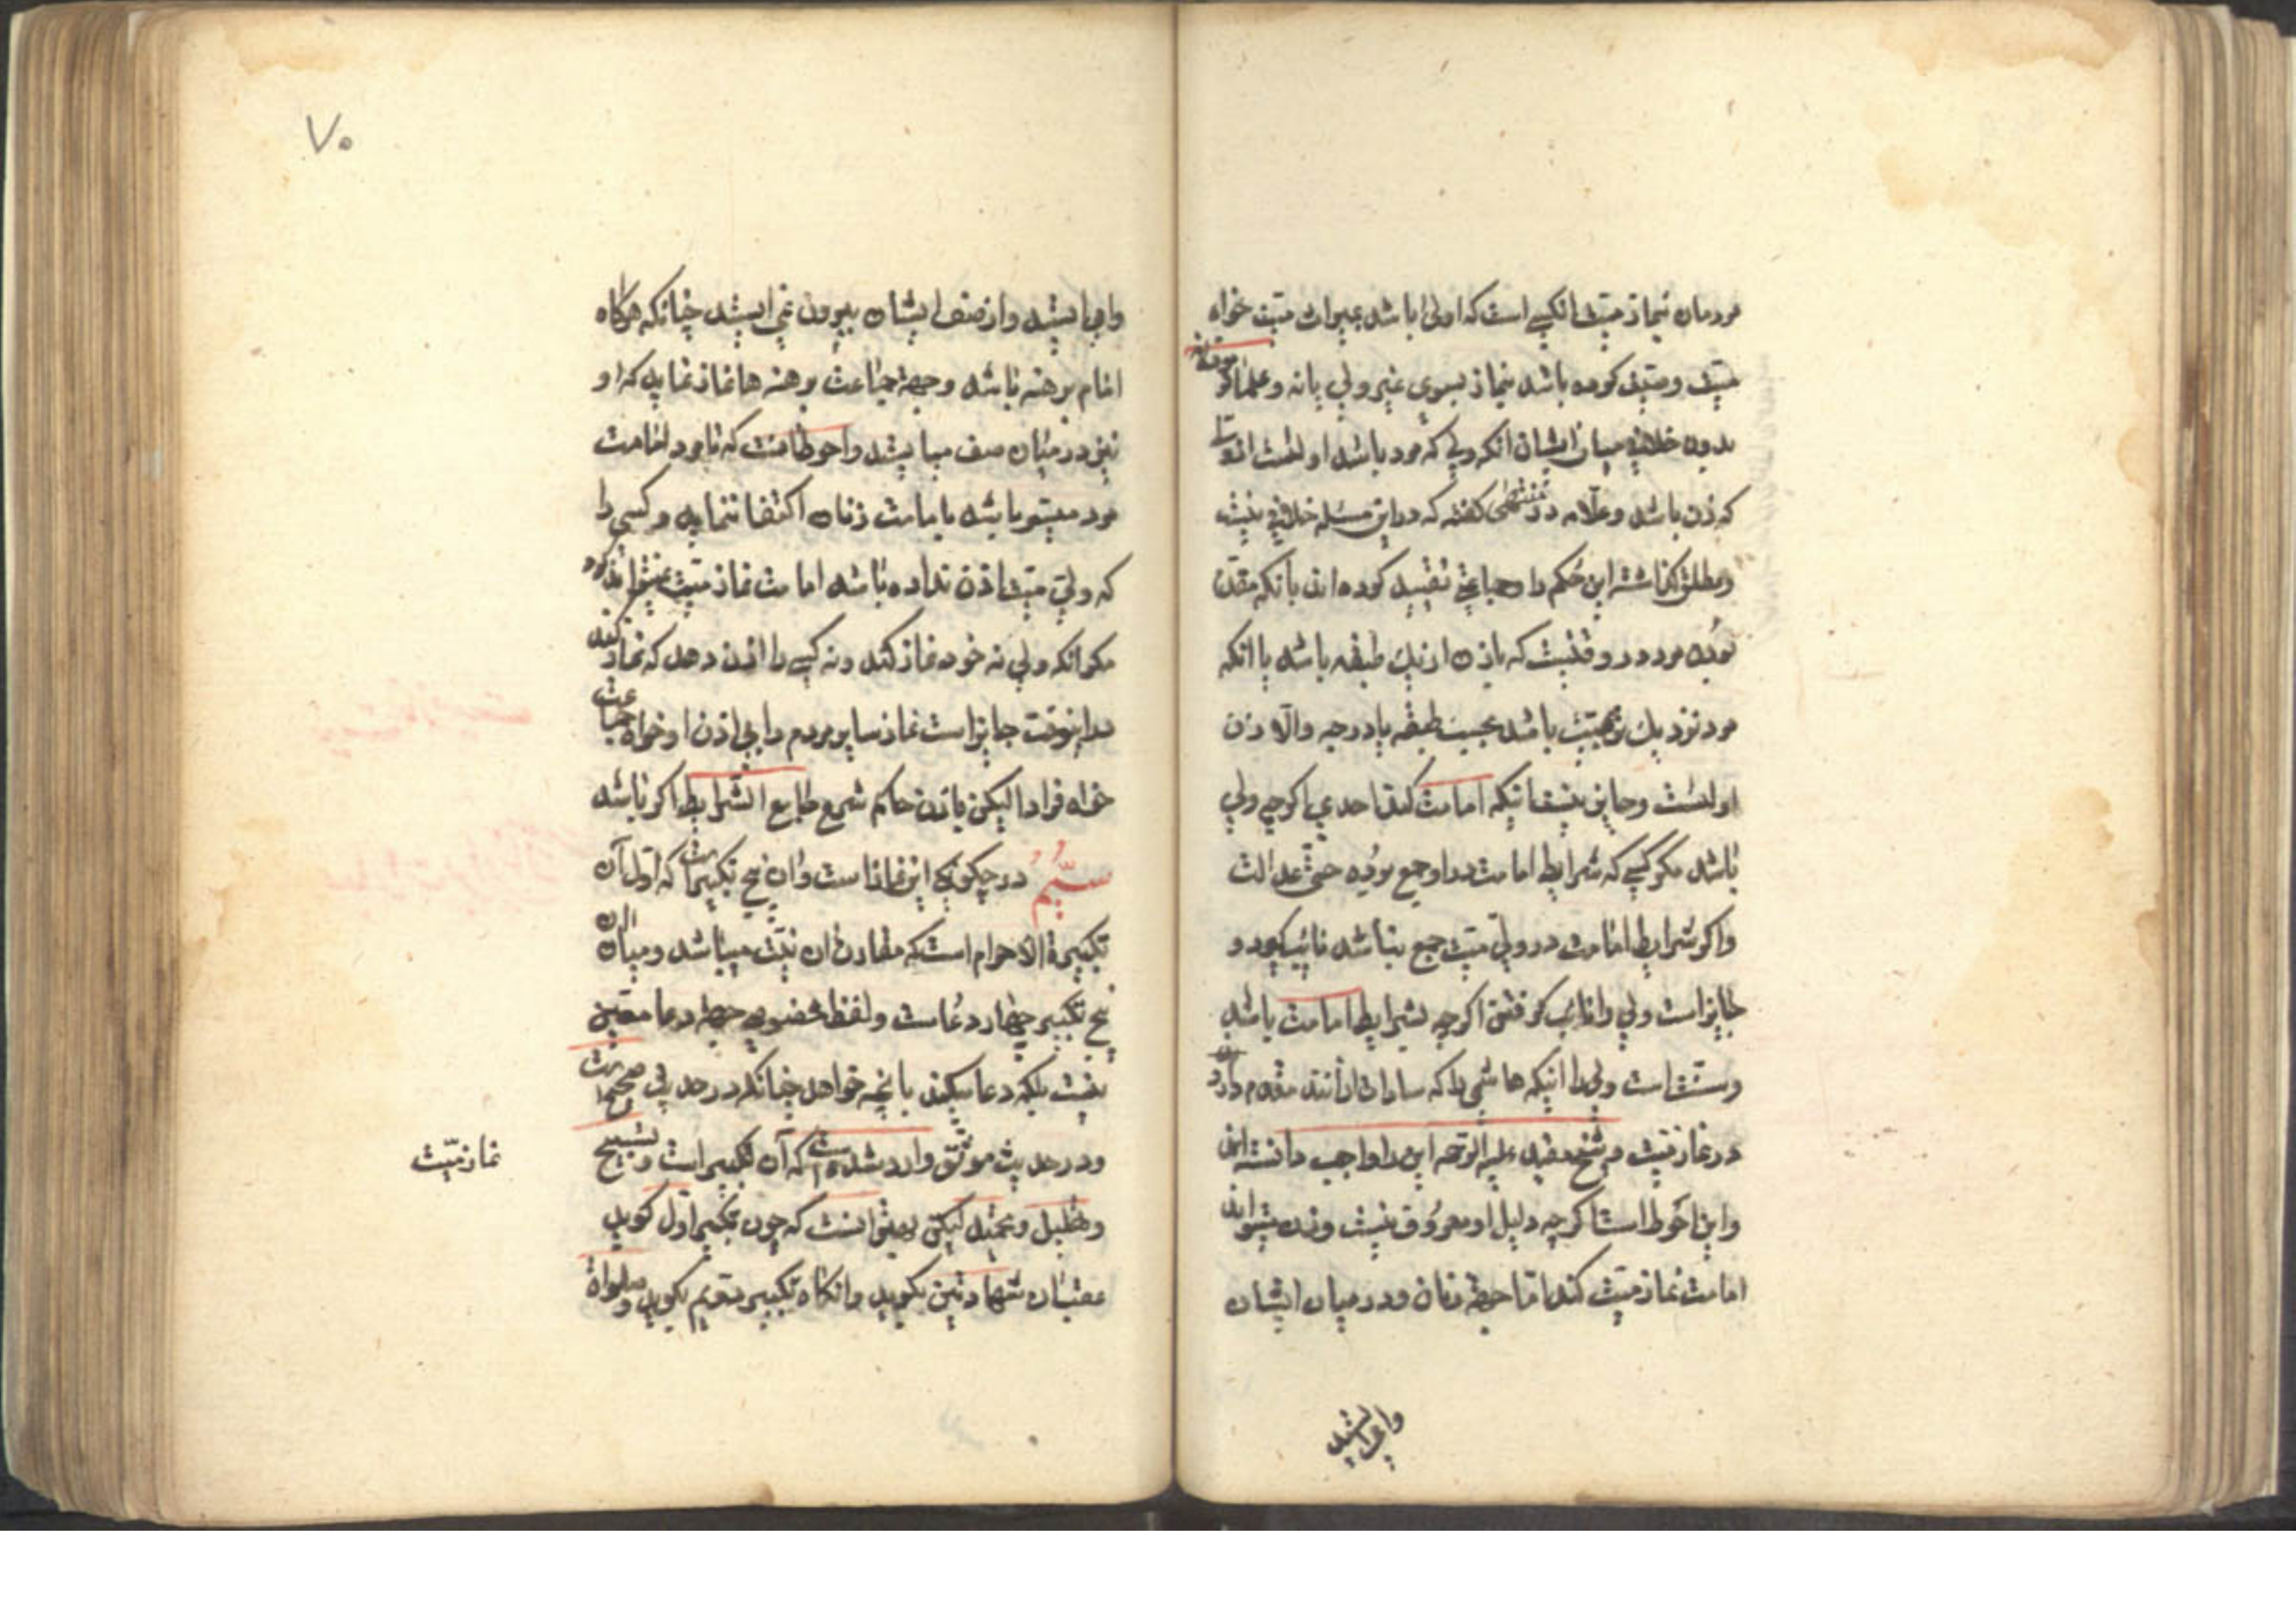 مردمان بنماز میّت انکسی است که اولی باشد بمیراث میّت خواه
میّت وصیّت کرده باشد بنماز بسوی غیر ولی یا نه و علما گفته
بدون خلافی میان ایشان انکه ولی که مرد باشد اولیست از ولی
که زن باشد و علّامه در منتهی گفته که در این مسئله خلافی نیست
و مطلق گذاشته این حکم را و جماعتی تقیید کرده اند بانکه مقدّم
بودن مرد در وقتیست که با زن از یک طبقه باشد یا انکه
مرد نزدیک تر بمیّت باشد بحسب طبقه یا درجه والّا زن
اولیست و جایز نیست اینکه امامت کند احدی اگرچه ولی
باشد مگر کسی که شرایط امامت در او جمع بوده حتّی عدالت
و اگر شرایط امامت در ولی میّت جمع نباشد نائب گیرد و
جایز است ولی را نائب گرفتن اگرچه بشرایط امامت باشد
و سنّت است ولی را اینکه هاشمی را که سادات اند مقدم دارد
در نماز میّت و شیخ مفید علیه الرحمه این را واجب دانسته اند
و این احوط است اگرچه دلیل او معروف نیست و زن میتواند
امامت نماز میّت کند امّا جهة زنان و در میان ایشان
وا می ایستد
۷۰
وا می ایستد و از صف ایشان بیرون نمی ایستد چنانکه هرگاه
امام برهنه باشد و جهة جماعت برهنه ها نماز نماید که او
نیز در میان صف میایستد و احوط آنست که تا مرد امامت
مرد میسّر باشد بامامت زنان اکتفا ننماید و کسی را
که ولیّ میّت اذن نداده باشد امامت نماز میّت نمیتواند کرد
مگر انکه ولی نه خود نماز کند و نه کسی را اذن دهد که نماز کند
در اینوقت جایز است نماز سایر مردم را بی اذن او خواه جماعت
خواه فرادا لیکن باذن حاکم شرع جامع الشرایط اگر باشد
سیّم در چگونگی این نماز است و ان پنج تکبیر است که اوّل آن
تکبیرة الاحرام است که مقارن ان نیّت میباشد و میان ان
پنج تکبیر چهار دعاست و لفظ مخصوصی جهة دعا معیّن
نیست بلکه دعا میکند بانچه خواهد چنانکه در حدیث صحیح است
و در حدیث موثّق وارد شده است که آن تکبیر است و تسبیح
و تهلیل و تحمید لیکن بهتر انست که چون تکبیر اوّل گوید
عقب ان شهادتین بگوید و انگاه تکبیر دویّم بگوید و صلواة
نماز میّت